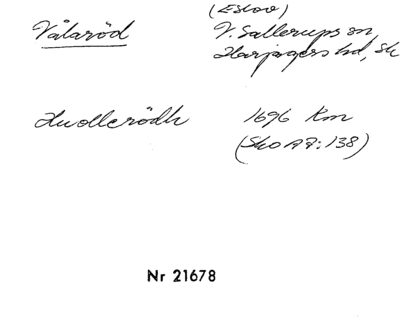 (Eslöv)
Vålaröd V. Sallerups sn,
Harjagers hd, Sk
Hwollerödh 1696 Km
(SkO A 7:138)
Nr 21678